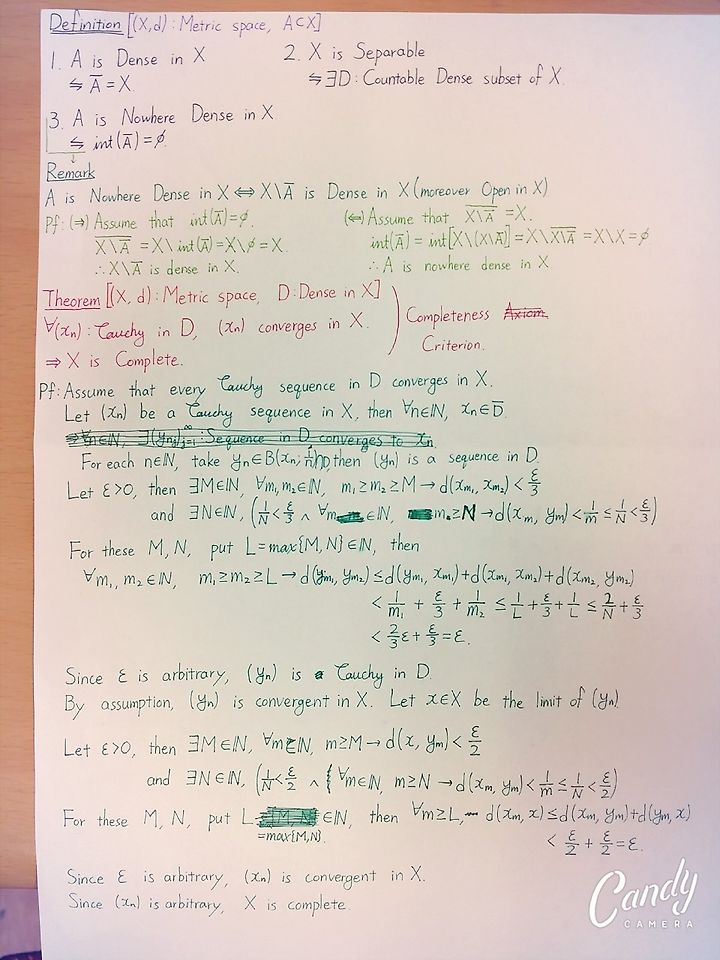 Definition [(X,d): Metric space, A⊂X]
1. A is Dense in X
⇆ A̅ = X.
2. X is Separable
⇆ ∃D: Countable Dense subset of X.
3. A is Nowhere Dense in X
⇆ int(A̅) = ∅.
Remark
A is Nowhere Dense in X ⇔ X\A̅ is Dense in X (moreover Open in X)
Pf: (⇒) Assume that int(A̅)=∅.
\overline{X\A̅} = X\int(A̅) = X\∅ = X.
∴ X\A̅ is dense in X.
(⇐) Assume that \overline{X\A̅} = X.
int(A̅) = int[X\(X\A̅)] = X\\overline{X\A̅} = X\X = ∅
∴ A is nowhere dense in X
Theorem [(X, d): Metric space, D: Dense in X]
∀(xₙ): Cauchy in D, (xₙ) converges in X.
⇒ X is Complete.
Completeness Axiom
Criterion.
Pf: Assume that every Cauchy sequence in D converges in X.
Let (xₙ) be a Cauchy sequence in X, then ∀n∈ℕ, xₙ∈D̅
⇒ ∀n∈ℕ, ∃(yₙⱼ)^∞_{j=1}: Sequence in D converges to xₙ
For each n∈ℕ, take yₙ∈B(xₙ; 1/n)∩D, then (yₙ) is a sequence in D.
Let ε>0, then ∃M∈ℕ, ∀m₁,m₂∈ℕ, m₁≥m₂≥M → d(xm₁, xm₂) < ε/3
and ∃N∈ℕ, (1/N < ε/3 ∧ ∀m ∈ℕ, m≥N → d(xm, ym) < 1/m ≤ 1/N < ε/3)
For these M, N, put L=max{M,N}∈ℕ, then
∀m₁, m₂∈ℕ, m₁≥m₂≥L → d(ym₁, ym₂) ≤ d(ym₁, xm₁)+d(xm₁, xm₂)+d(xm₂, ym₂)
< 1/m₁ + ε/3 + 1/m₂ ≤ 1/L + ε/3 + 1/L ≤ 2/N + ε/3
< 2/3 ε + ε/3 = ε.
Since ε is arbitrary, (yₙ) is Cauchy in D.
By assumption, (yₙ) is convergent in X. Let x∈X be the limit of (yₙ)
Let ε>0, then ∃M∈ℕ, ∀m∈ℕ, m≥M → d(x, ym) < ε/2
and ∃N∈ℕ, (1/N < ε/2 ∧ ∀m∈ℕ, m≥N → d(xm, ym) < 1/m ≤ 1/N < ε/2)
For these M, N, put L ∈ℕ, then ∀m≥L, d(xm, x) ≤ d(xm, ym)+d(ym, x)
=max{M,N}.
< ε/2 + ε/2 = ε.
Since ε is arbitrary, (xₙ) is convergent in X.
Since (xₙ) is arbitrary, X is complete.
Candy
CAMERA